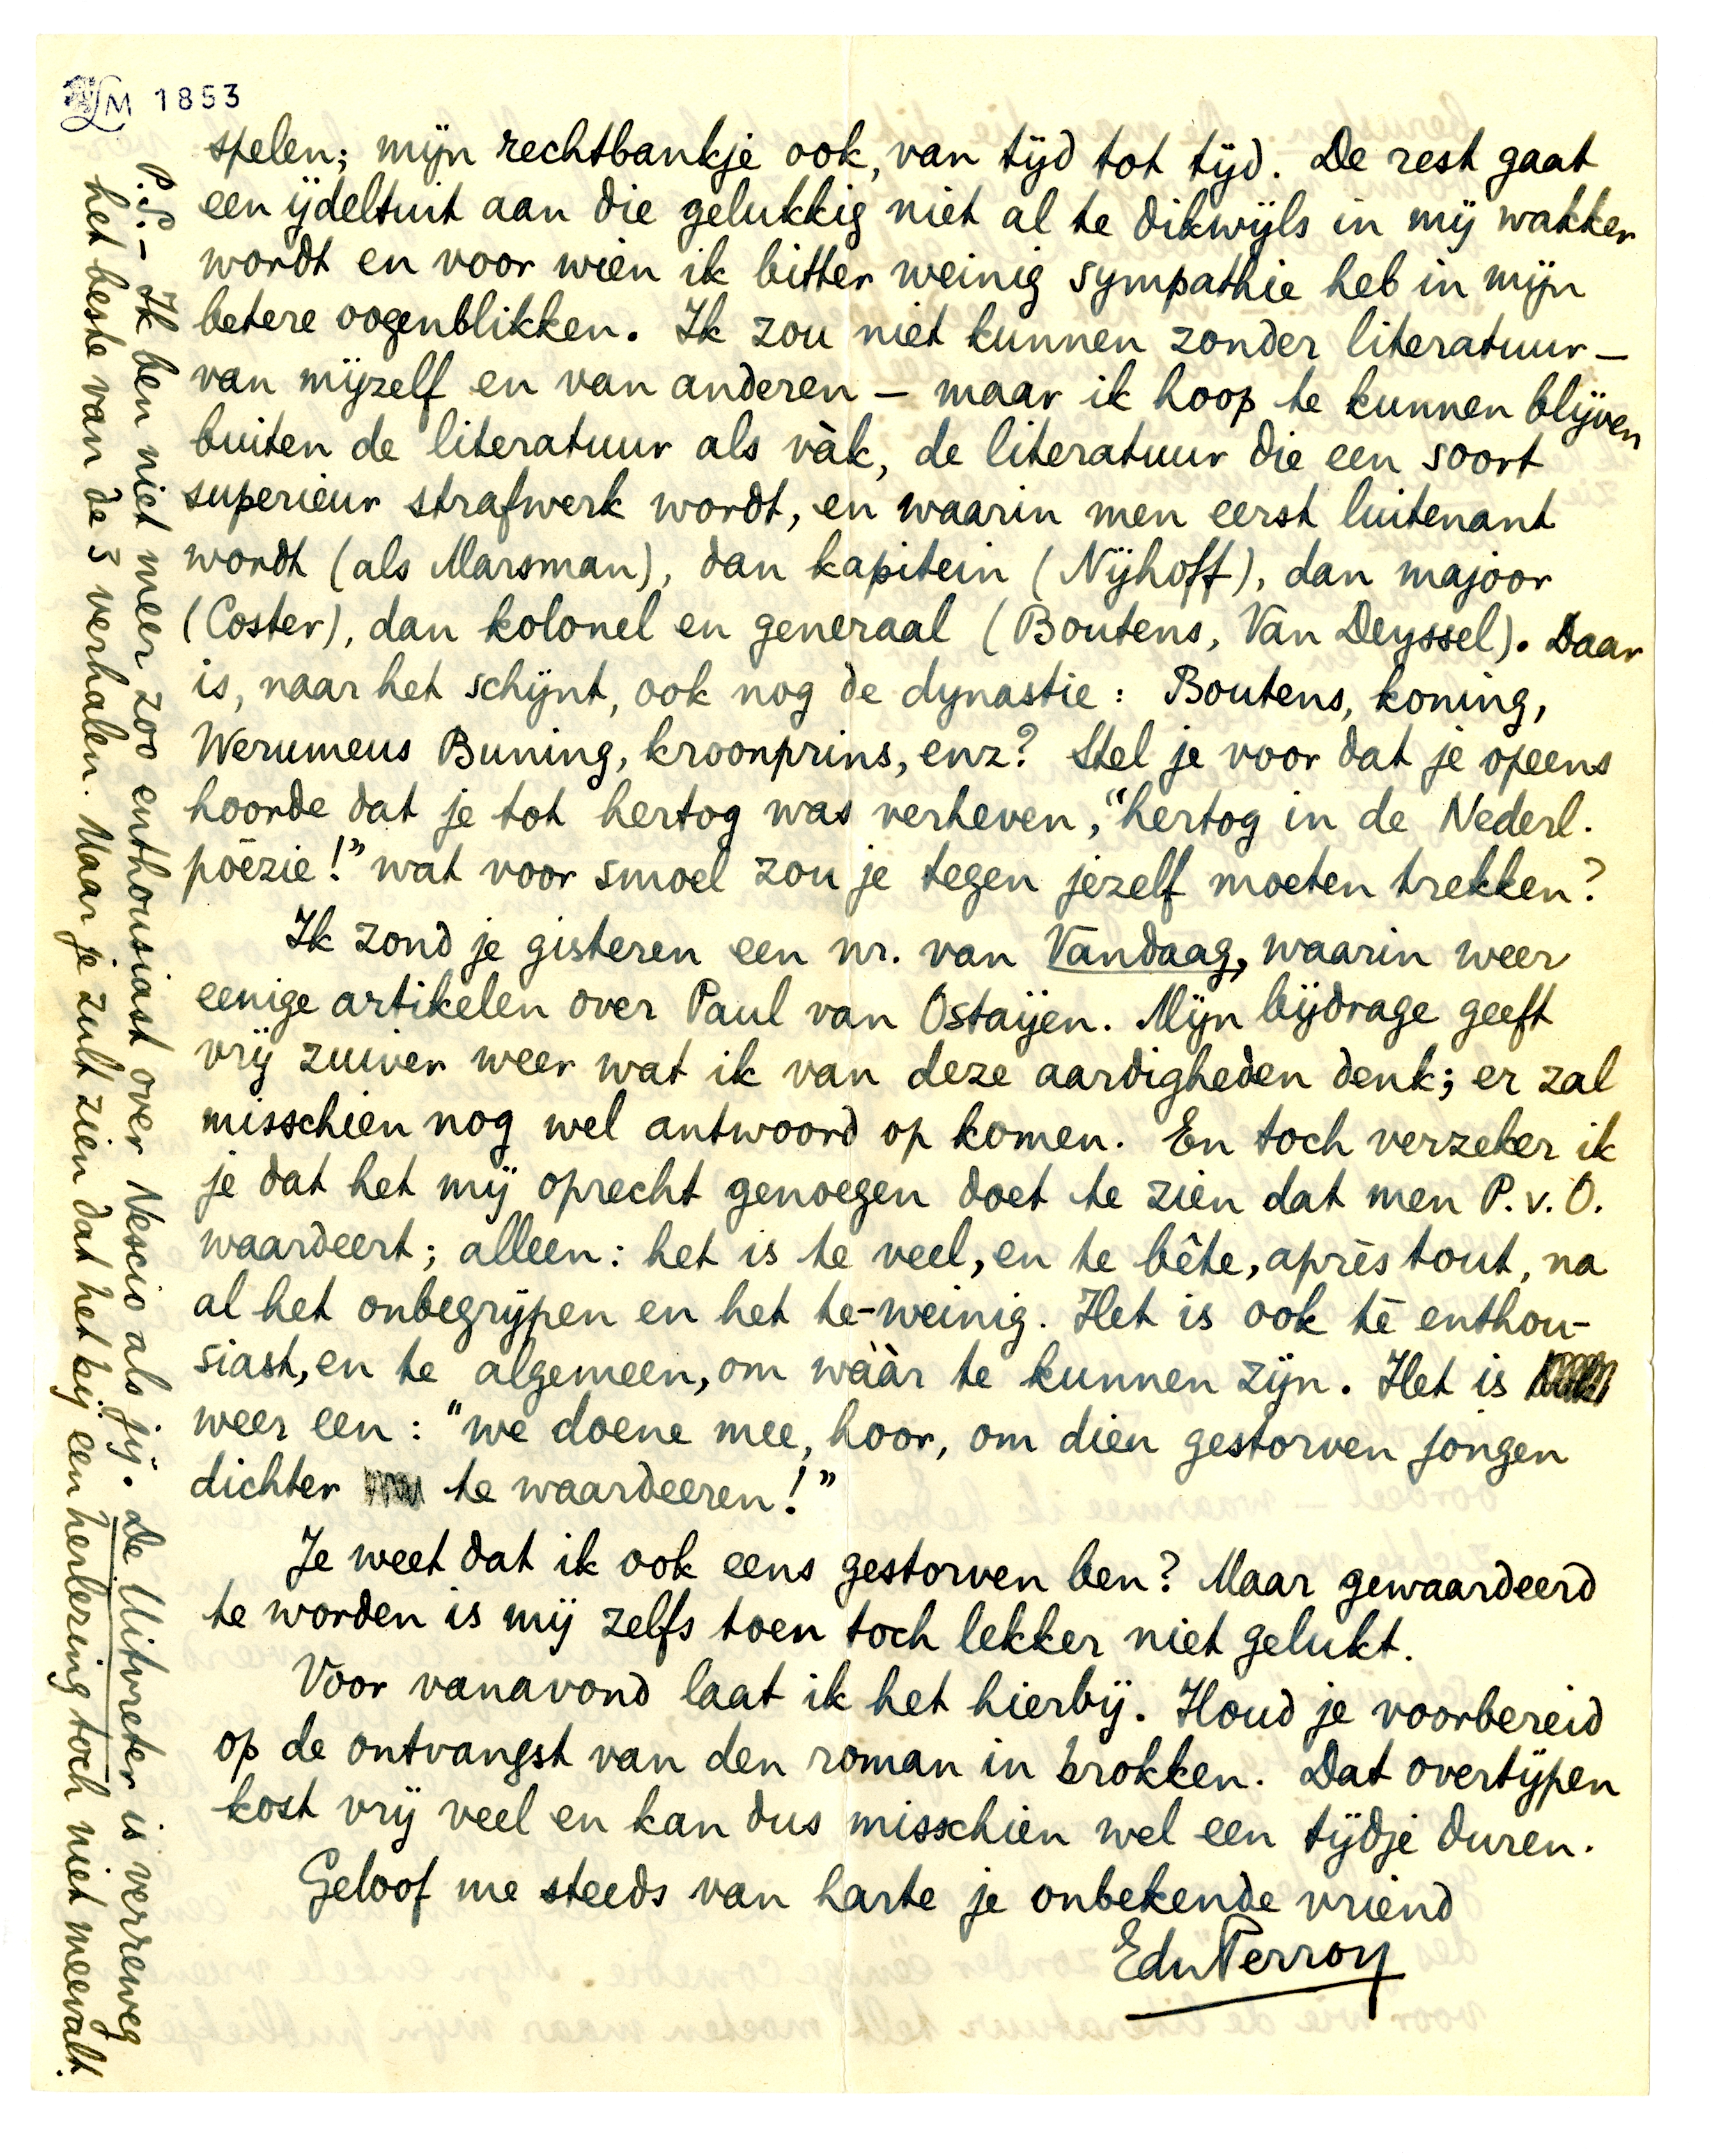 LM 1853
spelen; mijn rechtbankje ook, van tijd tot tijd. De rest gaat
een ijdeltuit aan die gelukkig niet al te dikwijls in mij wakker
wordt en voor wien ik bitter weinig sympathie heb in mijn
betere oogenblikken. Ik zou niet kunnen zonder literatuur —
van mijzelf en van anderen — maar ik hoop te kunnen blijven
buiten de literatuur als vàk, de literatuur die een soort
superieur strafwerk wordt, en waarin men eerst luitenant
wordt (als Marsman), dan kapitein (Nijhoff), dan majoor
(Coster), dan kolonel en generaal (Boutens, Van Deyssel). Daar
is, naar het schijnt, ook nog de dynastie: Boutens, koning,
Werumeus Buning, kroonprins, enz? Stel je voor dat je opeens
hoorde dat je tot hertog was verheven, "hertog in de Nederl.
poëzie!" wat voor smoel zou je tegen jezelf moeten trekken?
Ik zond je gisteren een nr. van Vandaag, waarin weer
eenige artikelen over Paul van Ostaijen. Mijn bijdrage geeft
vrij zuiver weer wat ik van deze aardigheden denk; er zal
misschien nog wel antwoord op komen. En toch verzeker ik
je dat het mij oprecht genoegen doet te zien dat men P.v.O.
waardeert; alleen: het is te veel, en te bête, après tout, na
al het onbegrijpen en het te-weinig. Het is ook té enthou-
siast, en te algemeen, om wáàr te kunnen zijn. Het is
weer een: "we doene mee, hoor, om dien gestorven jongen
dichter te waardeeren!"
Je weet dat ik ook eens gestorven ben? Maar gewaardeerd
te worden is mij zelfs toen toch lekker niet gelukt.
Voor vanavond laat ik het hierbij. Houd je voorbereid
op de ontvangst van den roman in brokken. Dat overtijpen
kost vrij veel en kan dus misschien wel een tijdje duren.
Geloof me steeds van harte je onbekende vriend
EduPerron
P.S. — Ik ben niet meer zoo enthousiast over Nescio als jij. De Uitvreter is verreweg
het beste van de 3 verhalen. Maar je zult zien dat het bij een herlezing toch niet meevalt.